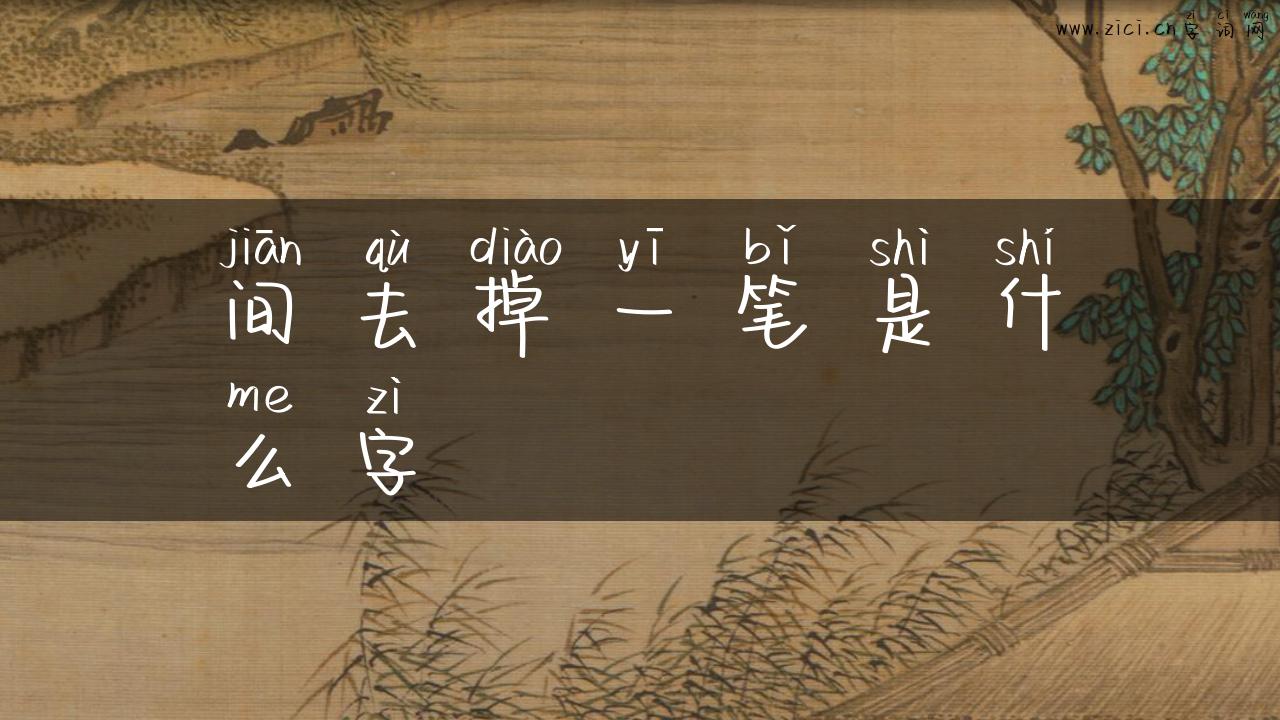 zì cí wǎng
www.zici.cn字词网
jiān qù diào yī bǐ shì shí
间去掉一笔是什
me zì
么字